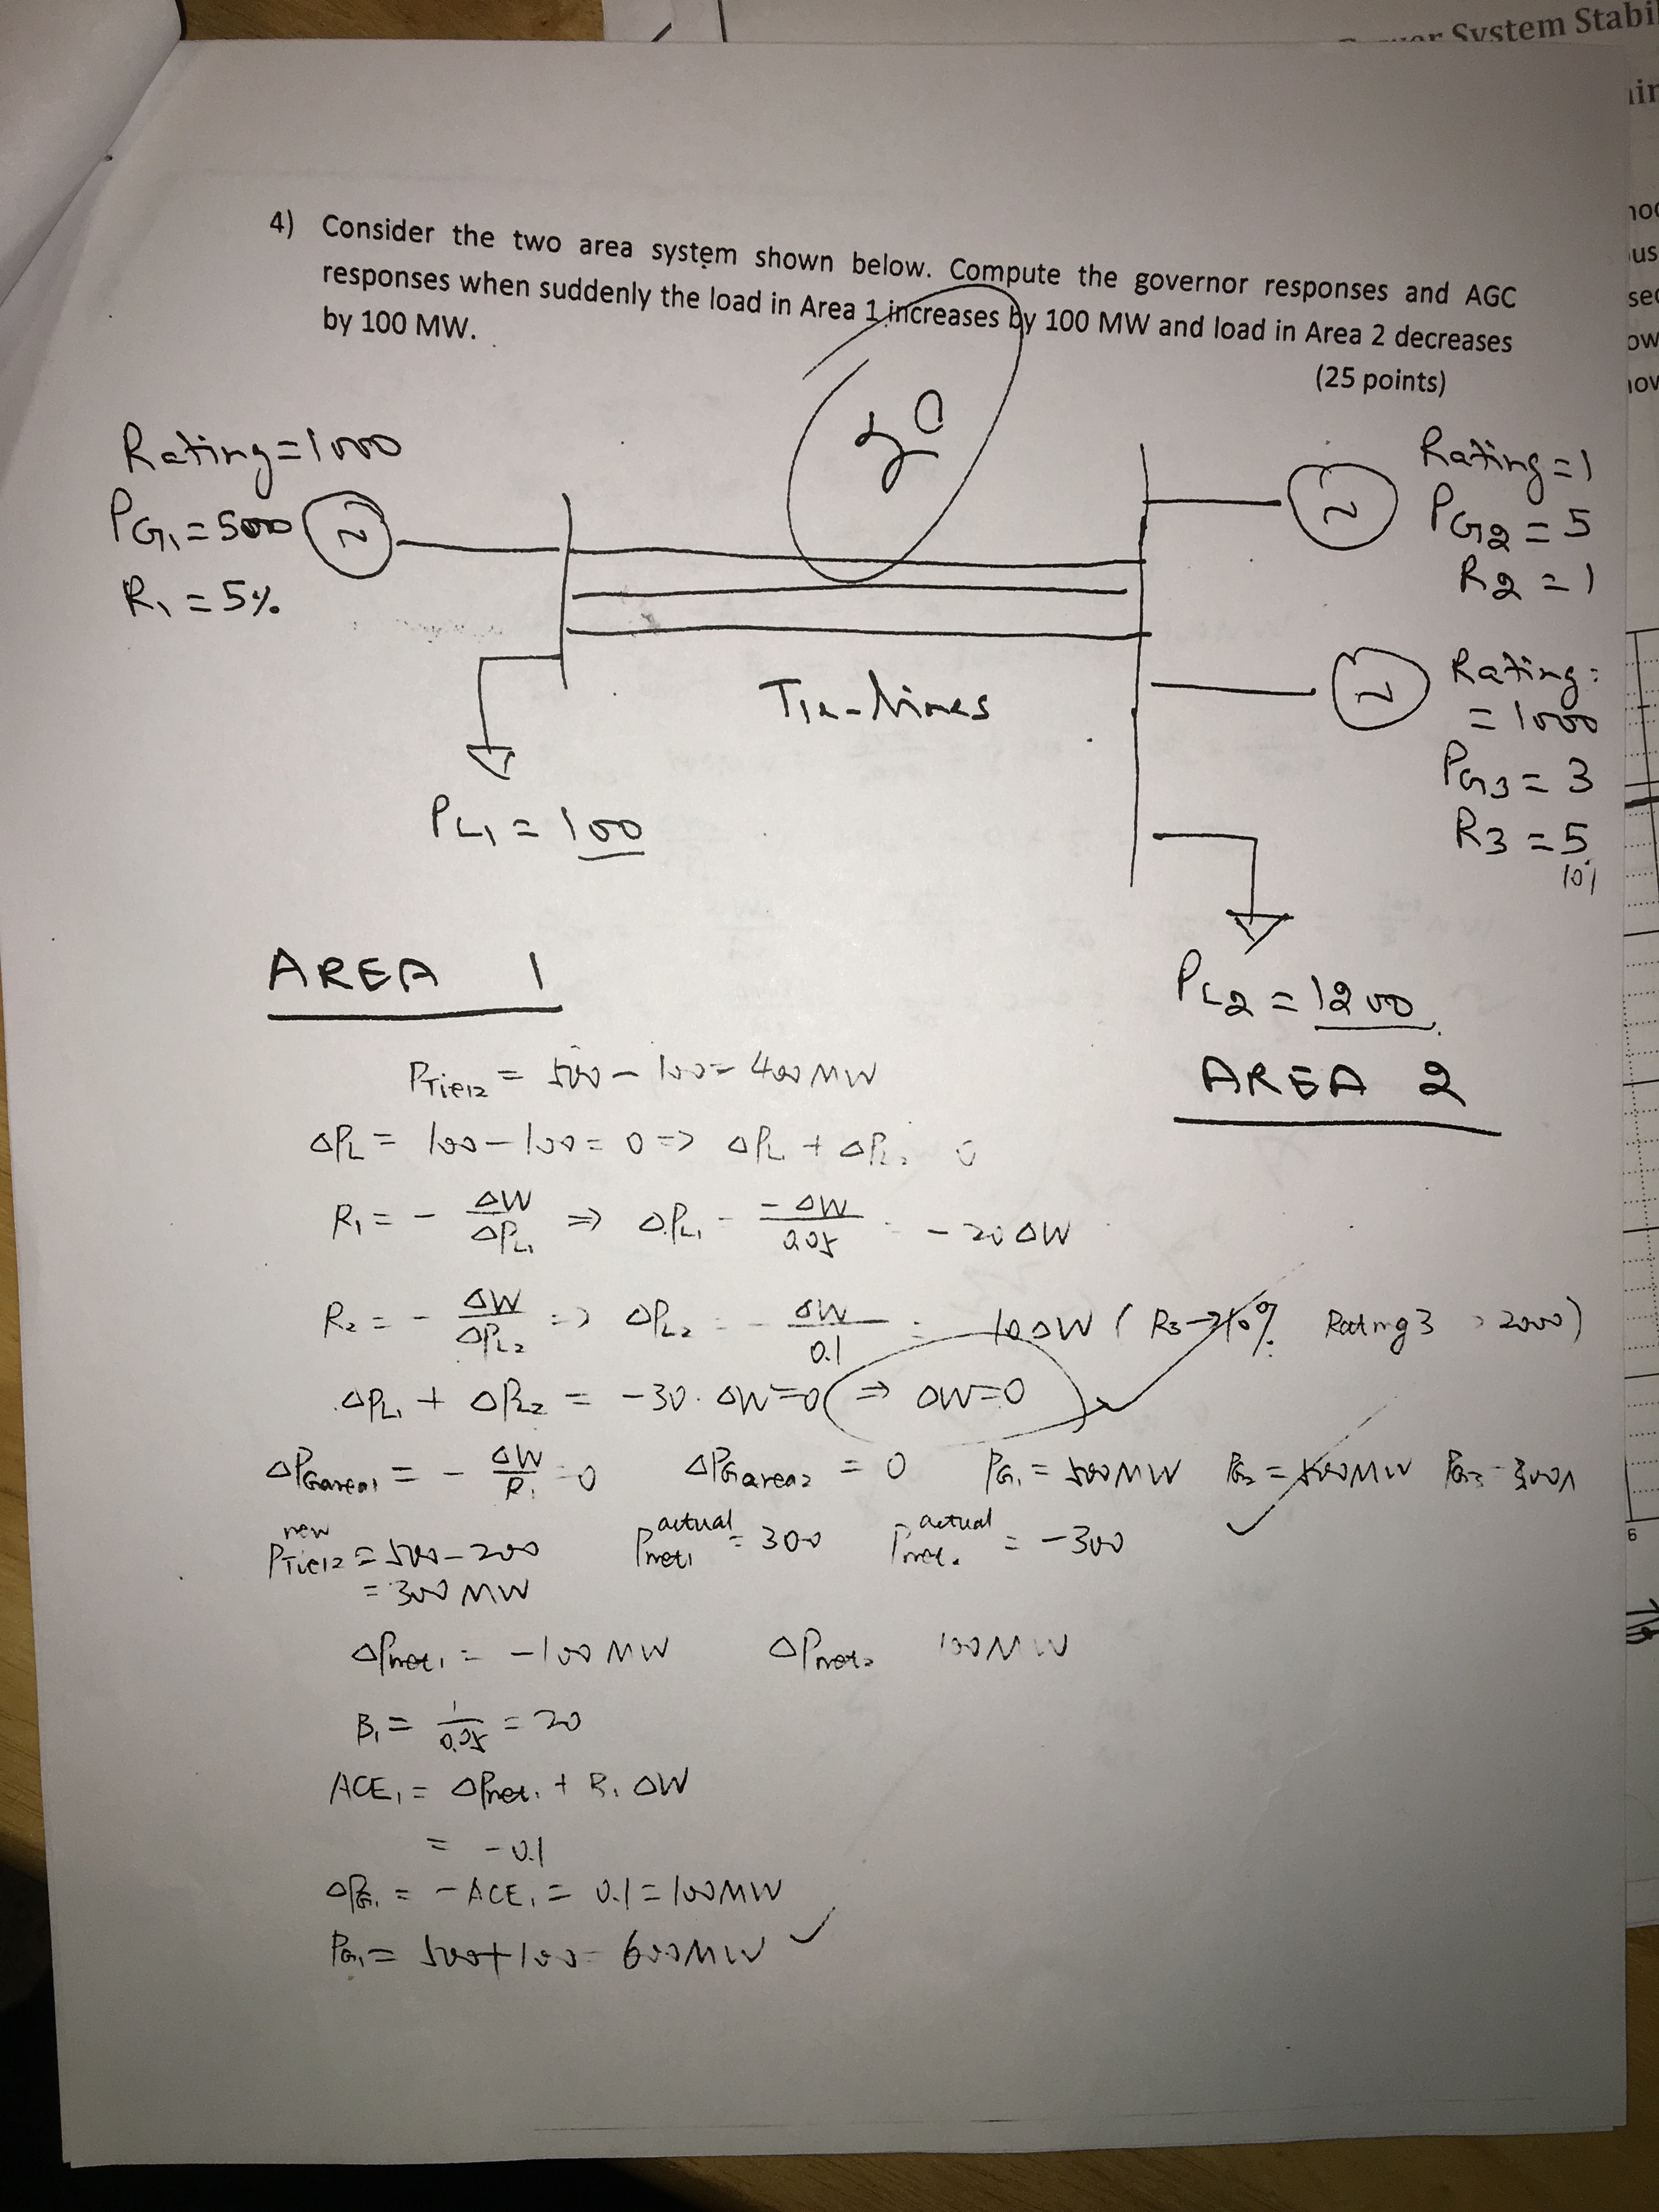 Power System Stabi
4) Consider the two area system shown below. Compute the governor responses and AGC
responses when suddenly the load in Area 1 increases by 100 MW and load in Area 2 decreases
by 100 MW.
(25 points)
Rating = 1000
PG1 = 500
R1 = 5%
Rating = 1
PG2 = 5
R2 = 1
Rating =
= 1000
PG3 = 3
R3 = 5
10%
Tie-Lines
PL1 = 100
PL2 = 1200
AREA 1
AREA 2
PTie12 = 500 - 100 = 400 MW
ΔPL = 100 - 100 = 0 => ΔPL + ΔPL2 0
R1 = - ΔW/ΔPL1 => ΔPL1 = -ΔW/0.05 = -20ΔW
R2 = - ΔW/ΔPL2 => ΔPL2 = - ΔW/0.1 = 10ΔW ( R3→10% Rating3 → 2000)
ΔPL1 + ΔPL2 = -30·ΔW=0 => ΔW=0
ΔPGarea1 = - ΔW/R1 = 0 ΔPGarea2 = 0 PG1 = 500MW PG2 = 500MW PG3 = 300
PTie12 new = 500-200 Pnet1 actual = 300 Pnet2 actual = -300
= 300 MW
ΔPnet1 = -100 MW ΔPnet2 100MW
B1 = 1/0.05 = 20
ACE1 = ΔPnet1 + B1 ΔW
= -0.1
ΔPG1 = -ACE1 = 0.1 = 100MW
PG1 = 500+100 = 600MW
6